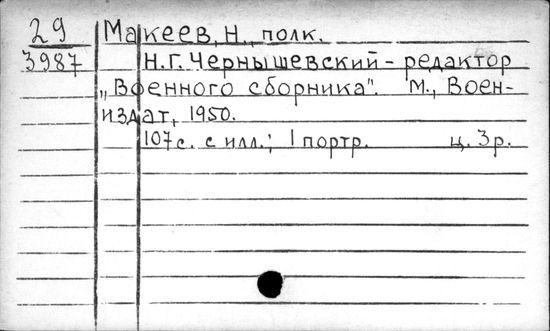 29 Макеев, Н., полк.
3987 Н.Г. Чернышевский - редактор
„Военного сборника". М., Воен-
издат, 1950.
107 с. с илл.; 1 портр. ц. 3 р.